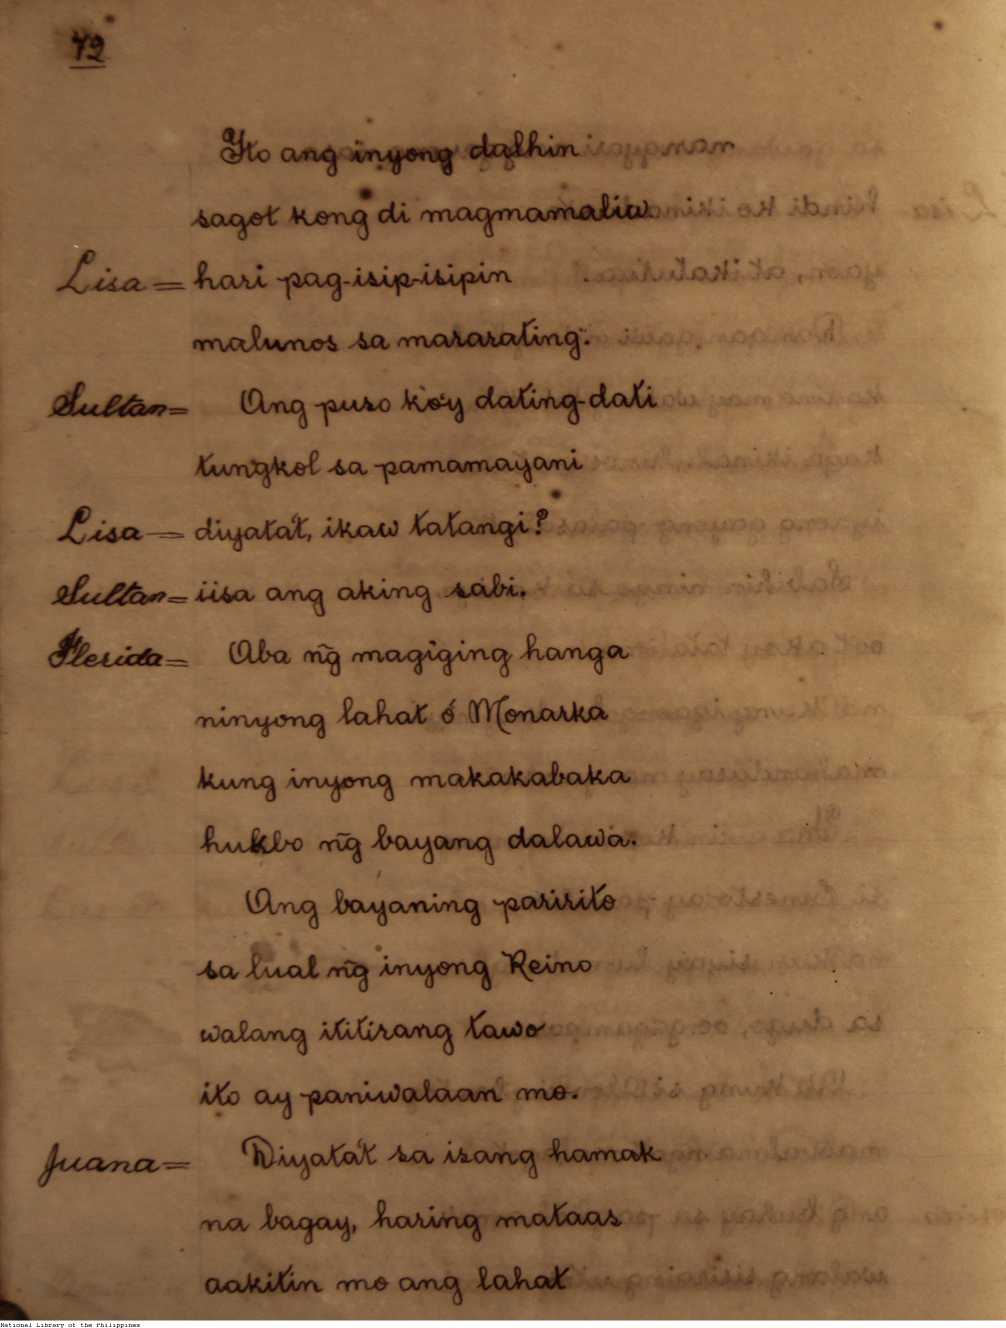 72
Yto ang inyong dalhin
sagot kong di magmamaliw
Lisa = hari pag-isip-isipin
malunos sa mararating.
Sultan= Ang puso ko'y dating-dati
tungkol sa pamamayani
Lisa = diyata't, ikaw tatangi?
Sultan= iisa ang aking sabi.
Flerida= Aba ng̃ magiging hanga
ninyong lahat ó Monarka
kung inyong makakabaka
hukbo ng̃ bayang dalawa.
Ang bayaning paririto
sa lual ng̃ inyong Reino
walang ititirang tawo
ito ay paniwalaan mo.
Juana= Diyata't sa isang hamak
na bagay, haring mataas
aakitin mo ang lahat
National Library of the Philippines